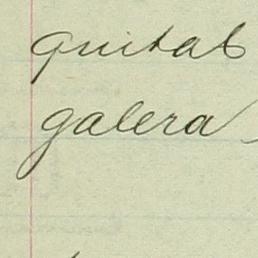 quitab
galera